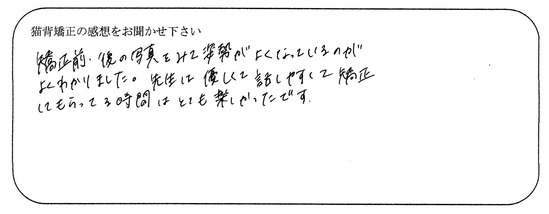 猫背矯正の感想をお聞かせ下さい
矯正前・後の写真をみて姿勢がよくなっているのが
よくわかりました。先生は優しくて話しやすくて矯正
してもらってる時間はとても楽しかったです.